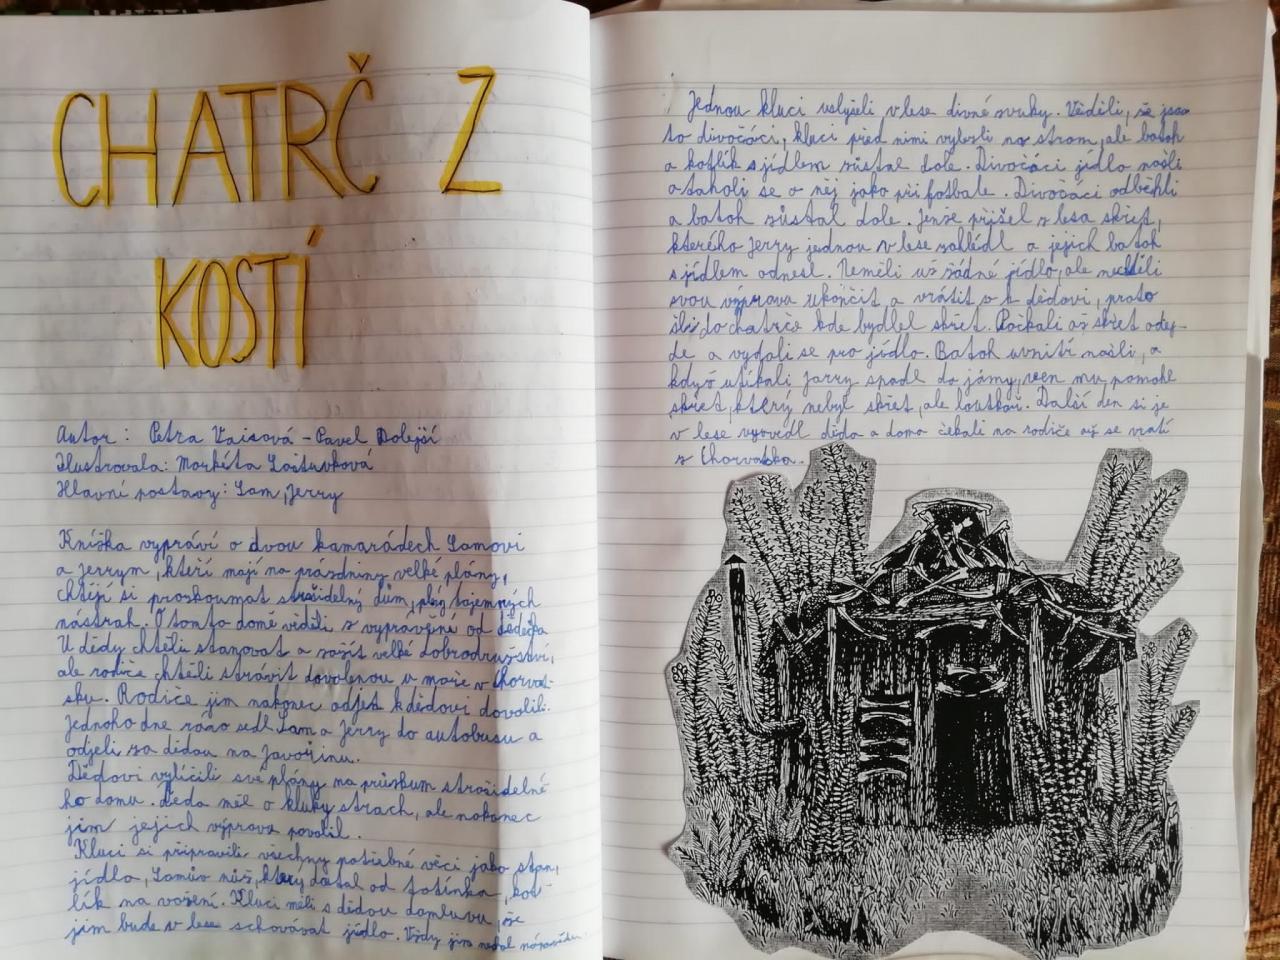 CHATRČ Z
KOSTÍ
Autor: Petra Vaisová - Pavel Dolejší
Ilustrovala: Markéta
Hlavní postavy: Sam, Jerry
Knížka vypráví o dvou kamarádech Samovi
a Jerrym, kteří mají na prázdniny velké plány,
chtějí si prozkoumat strašidelný dům, plný tajemných
nástrah. O tomto domě věděli z vyprávění od dědečka
U dědy chtěli stanovat a zažít velké dobrodružství,
ale rodiče chtěli strávit dovolenou u moře v Chorvat-
sku. Rodiče jim nakonec odjet k dědovi dovolili.
Jednoho dne ráno sedl Sam a Jerry do autobusu a
odjeli za dědou na Javořinu.
Dědovi vylíčili své plány na průzkum strašidelné
ho domu. Děda měl o kluky strach, ale nakonec
jim jejich výprava povolil.
Kluci si připravili všechny potřebné věci jako stan,
jídlo, Samův nůž, který dostal od tatínka, kot-
lík na vaření. Kluci měli s dědou domluvu, že
jim bude v lese schovávat jídlo. Vždy jim nechal nápovědu.
Jednou kluci uslyšeli v lese divné zvuky. Věděli, že jsou
to divočáci, kluci před nimi vylezli na strom, ale batoh
a kotlík s jídlem zůstal dole. Divočáci jídlo našli
a tahali se o něj jako při fotbale. Divočáci odběhli
a batoh zůstal dole. Jenže přišel z lesa skřet,
kterého Jerry jednou v lese zahlédl a jejich batoh
s jídlem odnesl. Neměli už žádné jídlo, ale nechtěli
svou výprava ukončit a vrátit se k dědovi, proto
šli do chatrče kde bydlel skřet. Počkali až skřet odej-
de a vydali se pro jídlo. Batoh uvnitř našli, a
když utíkali Jarry spadl do jámy, ven mu pomohl
skřet, který nebyl skřet, ale loutkař. Další den si je
v lese vyzvedl děda a doma čekali na rodiče až se vrátí
z Chorvatska.